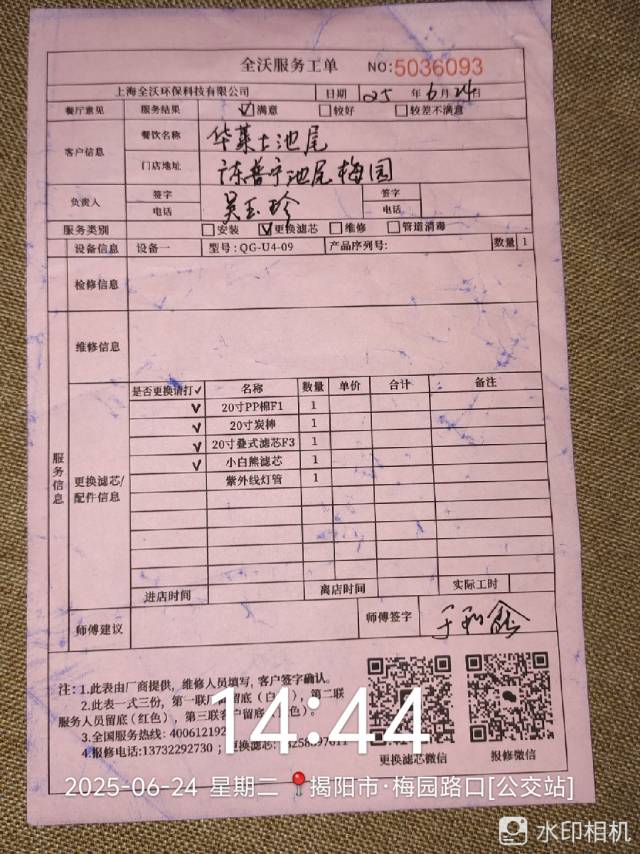 全沃服务工单 NO:5036093
上海全沃环保科技有限公司 日期 25 年 6 月 24 日
餐厅意见 服务结果 ☑满意 □较好 □较差不满意
客户信息 餐饮名称 华莱士池尾
门店地址 普宁池尾梅园
负责人 签字 吴玉珍 签字
电话 电话
服务类别 □安装 ☑更换滤芯 □维修 □管道消毒
设备信息 设备一 型号: QG-U4-09 产品序列号: 数量 1
检修信息
维修信息
服务信息
更换滤芯/配件信息
是否更换请打✓ 名称 数量 单价 合计 备注
✓ 20寸PP棉F1 1
✓ 20寸炭棒 1
✓ 20寸叠式滤芯F3 1
✓ 小白熊滤芯 1
紫外线灯管 1
进店时间 离店时间 实际工时
师傅建议 师傅签字
注: 1.此表由厂商提供，维修人员填写，客户签字确认。
2.此表一式三份，第一联厂商留底（白色），第二联
服务人员留底(红色)，第三联客户留底
3.全国服务热线: 40061219
4.报修电话:13732292730 ; 更换滤芯:
更换滤芯微信 报修微信
14:44
2025-06-24 星期二 揭阳市·梅园路口[公交站]
水印相机